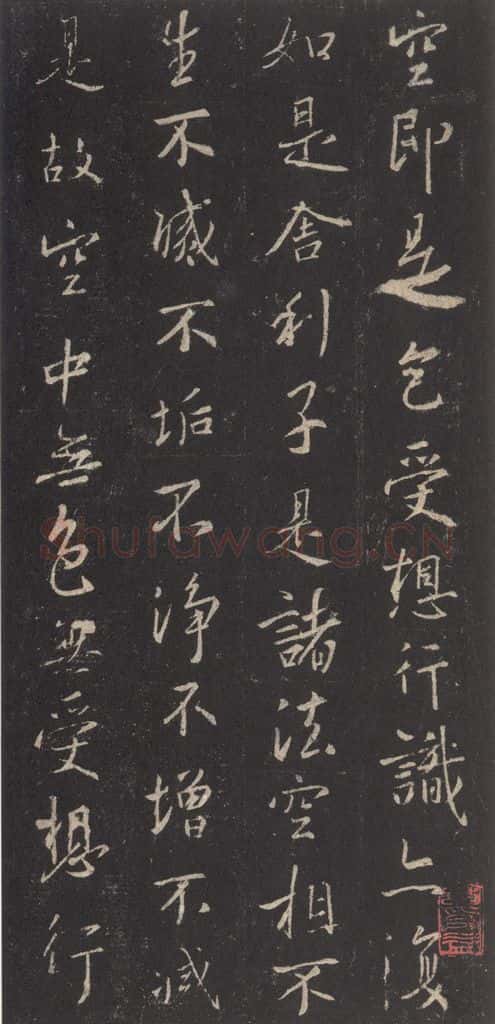 空即是色受想行識亦復
如是舍利子是諸法空相不
生不滅不垢不淨不增不減
是故空中無色無受想行
Shufawang.CN